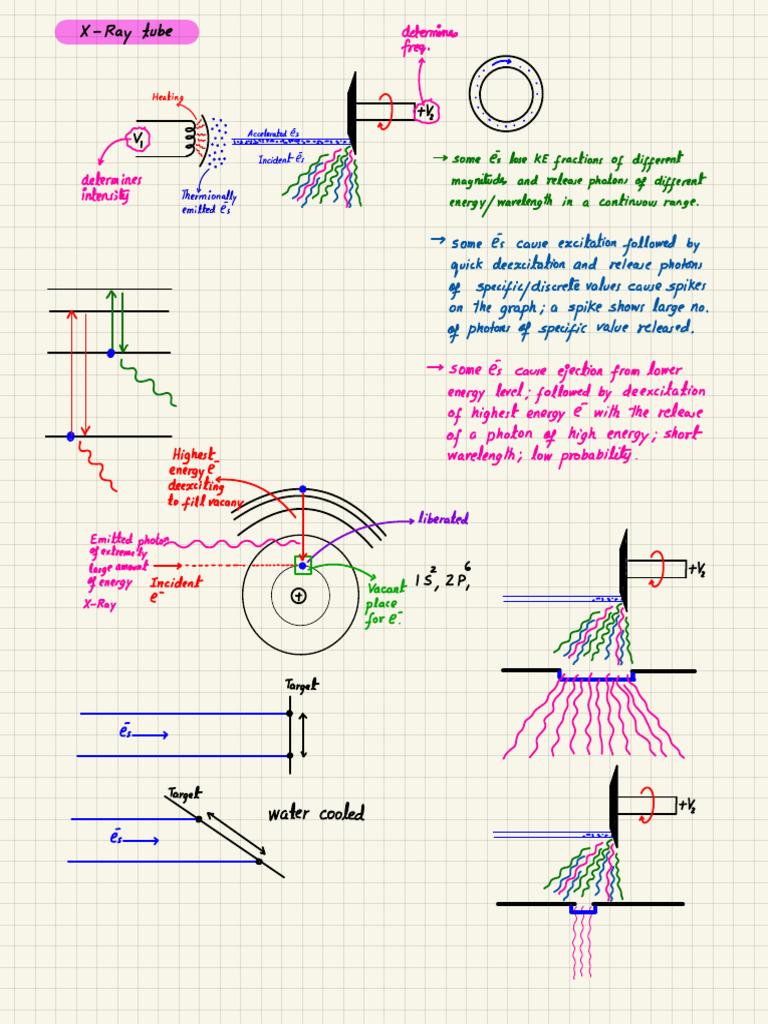 X-Ray tube
determines
freq.
Heating
V₁
+V₂
Accelerated e⁻s
Incident e⁻s
determines
intensity
Thermionally
emitted e⁻s
→ some e⁻s lose KE fractions of different
magnitude and release photons of different
energy/wavelength in a continuous range.
→ some e⁻s cause excitation followed by
quick deexcitation and release photons
of specific/discrete values cause spikes
on the graph; a spike shows large no.
of photons of specific value released.
→ some e⁻s cause ejection from lower
energy level; followed by deexcitation
of highest energy e⁻ with the release
of a photon of high energy; short
wavelength; low probability.
Highest
energy e⁻
deexciting
to fill vacany
liberated
Emitted photon
of extremely
large amount
of energy
X-Ray
Incident
e⁻
+
Vacant
place
for e⁻.
1S², 2P⁶,
+V₂
Target
e⁻s →
Target
water cooled
e⁻s →
+V₂